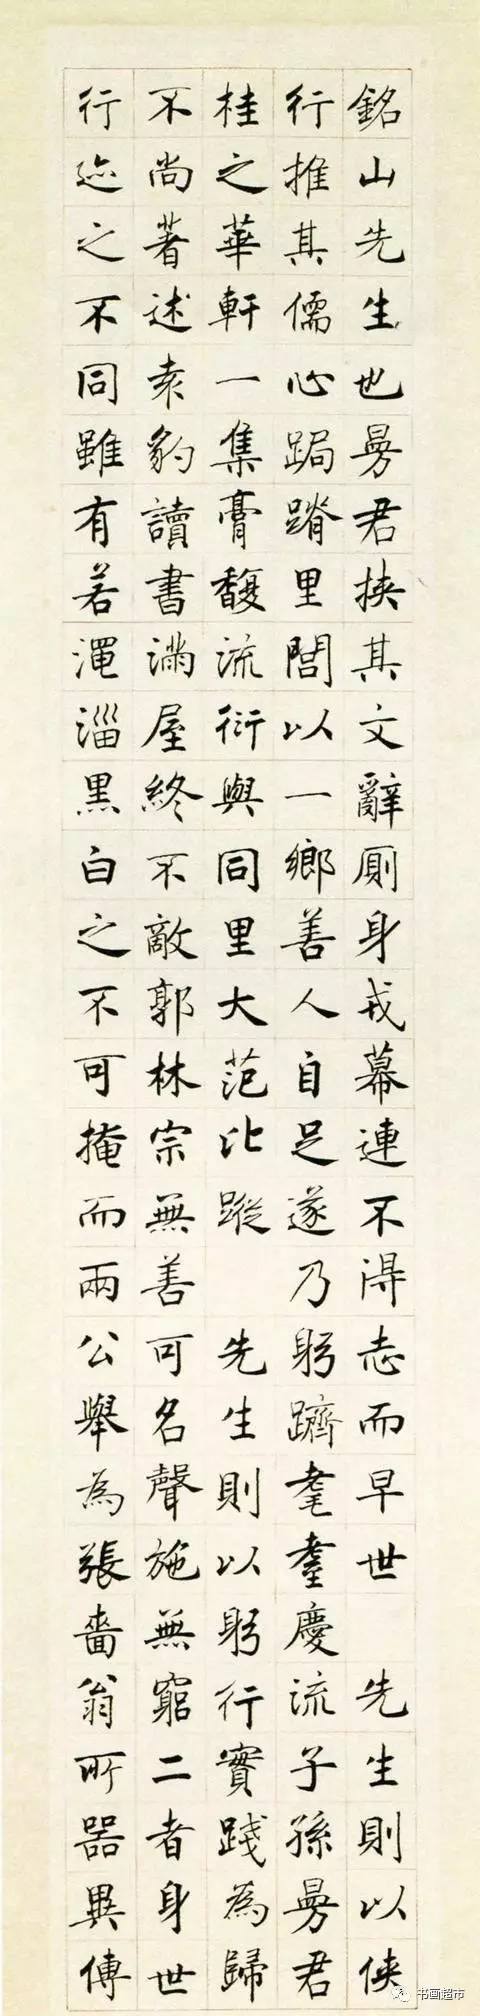 銘山先生也曼君挾其文辭厠身戎幕連不得志而早世 先生則以俠
行推其儒心跼蹐里閭以一鄉善人自足遂乃躬躋耄耋慶流子孫曼君
桂之華軒一集膏馥流衍與同里大范比蹤 先生則以躬行實踐為歸
不尚著述袁豹讀書滿屋終不敵郭林宗無善可名聲施無窮二者身世
行迹之不同雖有若澠淄黑白之不可掩而兩公舉為張嗇翁所器異傳
书画超市